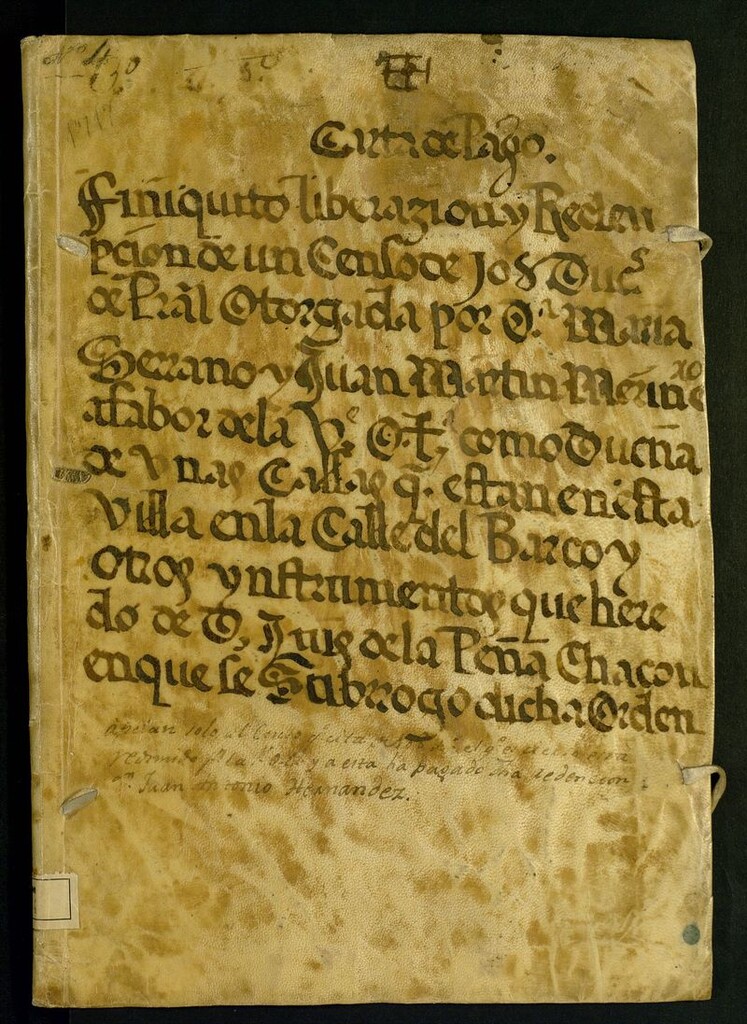 Nº 4
Carta de Pago.
Finiquito liberazion y Reden
pcion de un Censo de 108 Duc.ˢ
de Pral Otorgada por D.ª Maria
Serrano y Juan Martin Merino
a fabor de la V.ᵉ O. T.ª como Dueña
de Vnas Cassas q. estan en esta
Villa en la Calle del Barco y
otros ynstrumentos que here
do de D. Luis de la Peña Chacon
en que se Subrrogo dicha Orden
solo al Censo
redimido y a esta ha pagado dha redencion
Juan Antonio Hernandez.